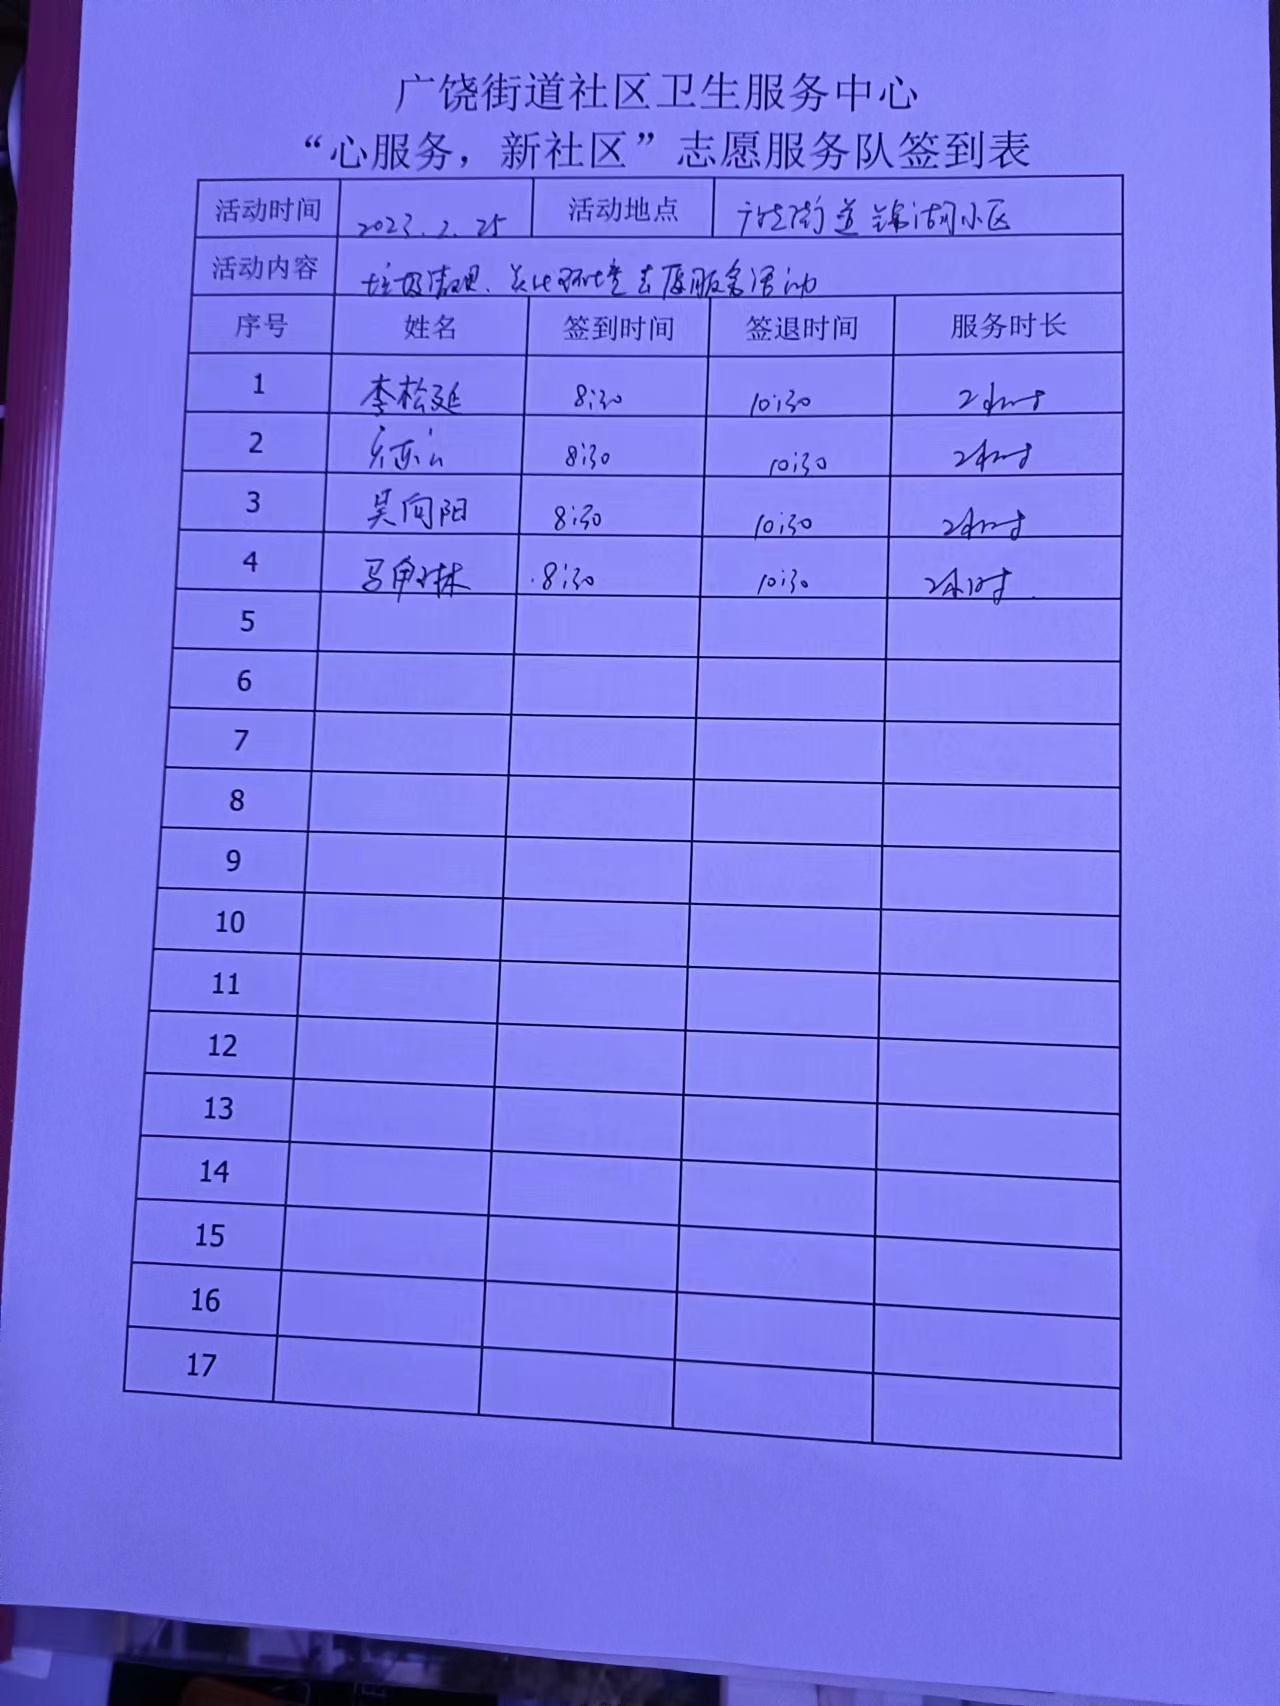 广饶街道社区卫生服务中心
“心服务，新社区”志愿服务队签到表
活动时间 2023.2.25 活动地点 广饶街道锦湖小区
活动内容 垃圾清理、美化环境志愿服务活动
序号 姓名 签到时间 签退时间 服务时长
1 李松延 8:30 10:30 2小时
2 8:30 10:30 2小时
3 吴向阳 8:30 10:30 2小时
4 8:30 10:30 2小时
5
6
7
8
9
10
11
12
13
14
15
16
17